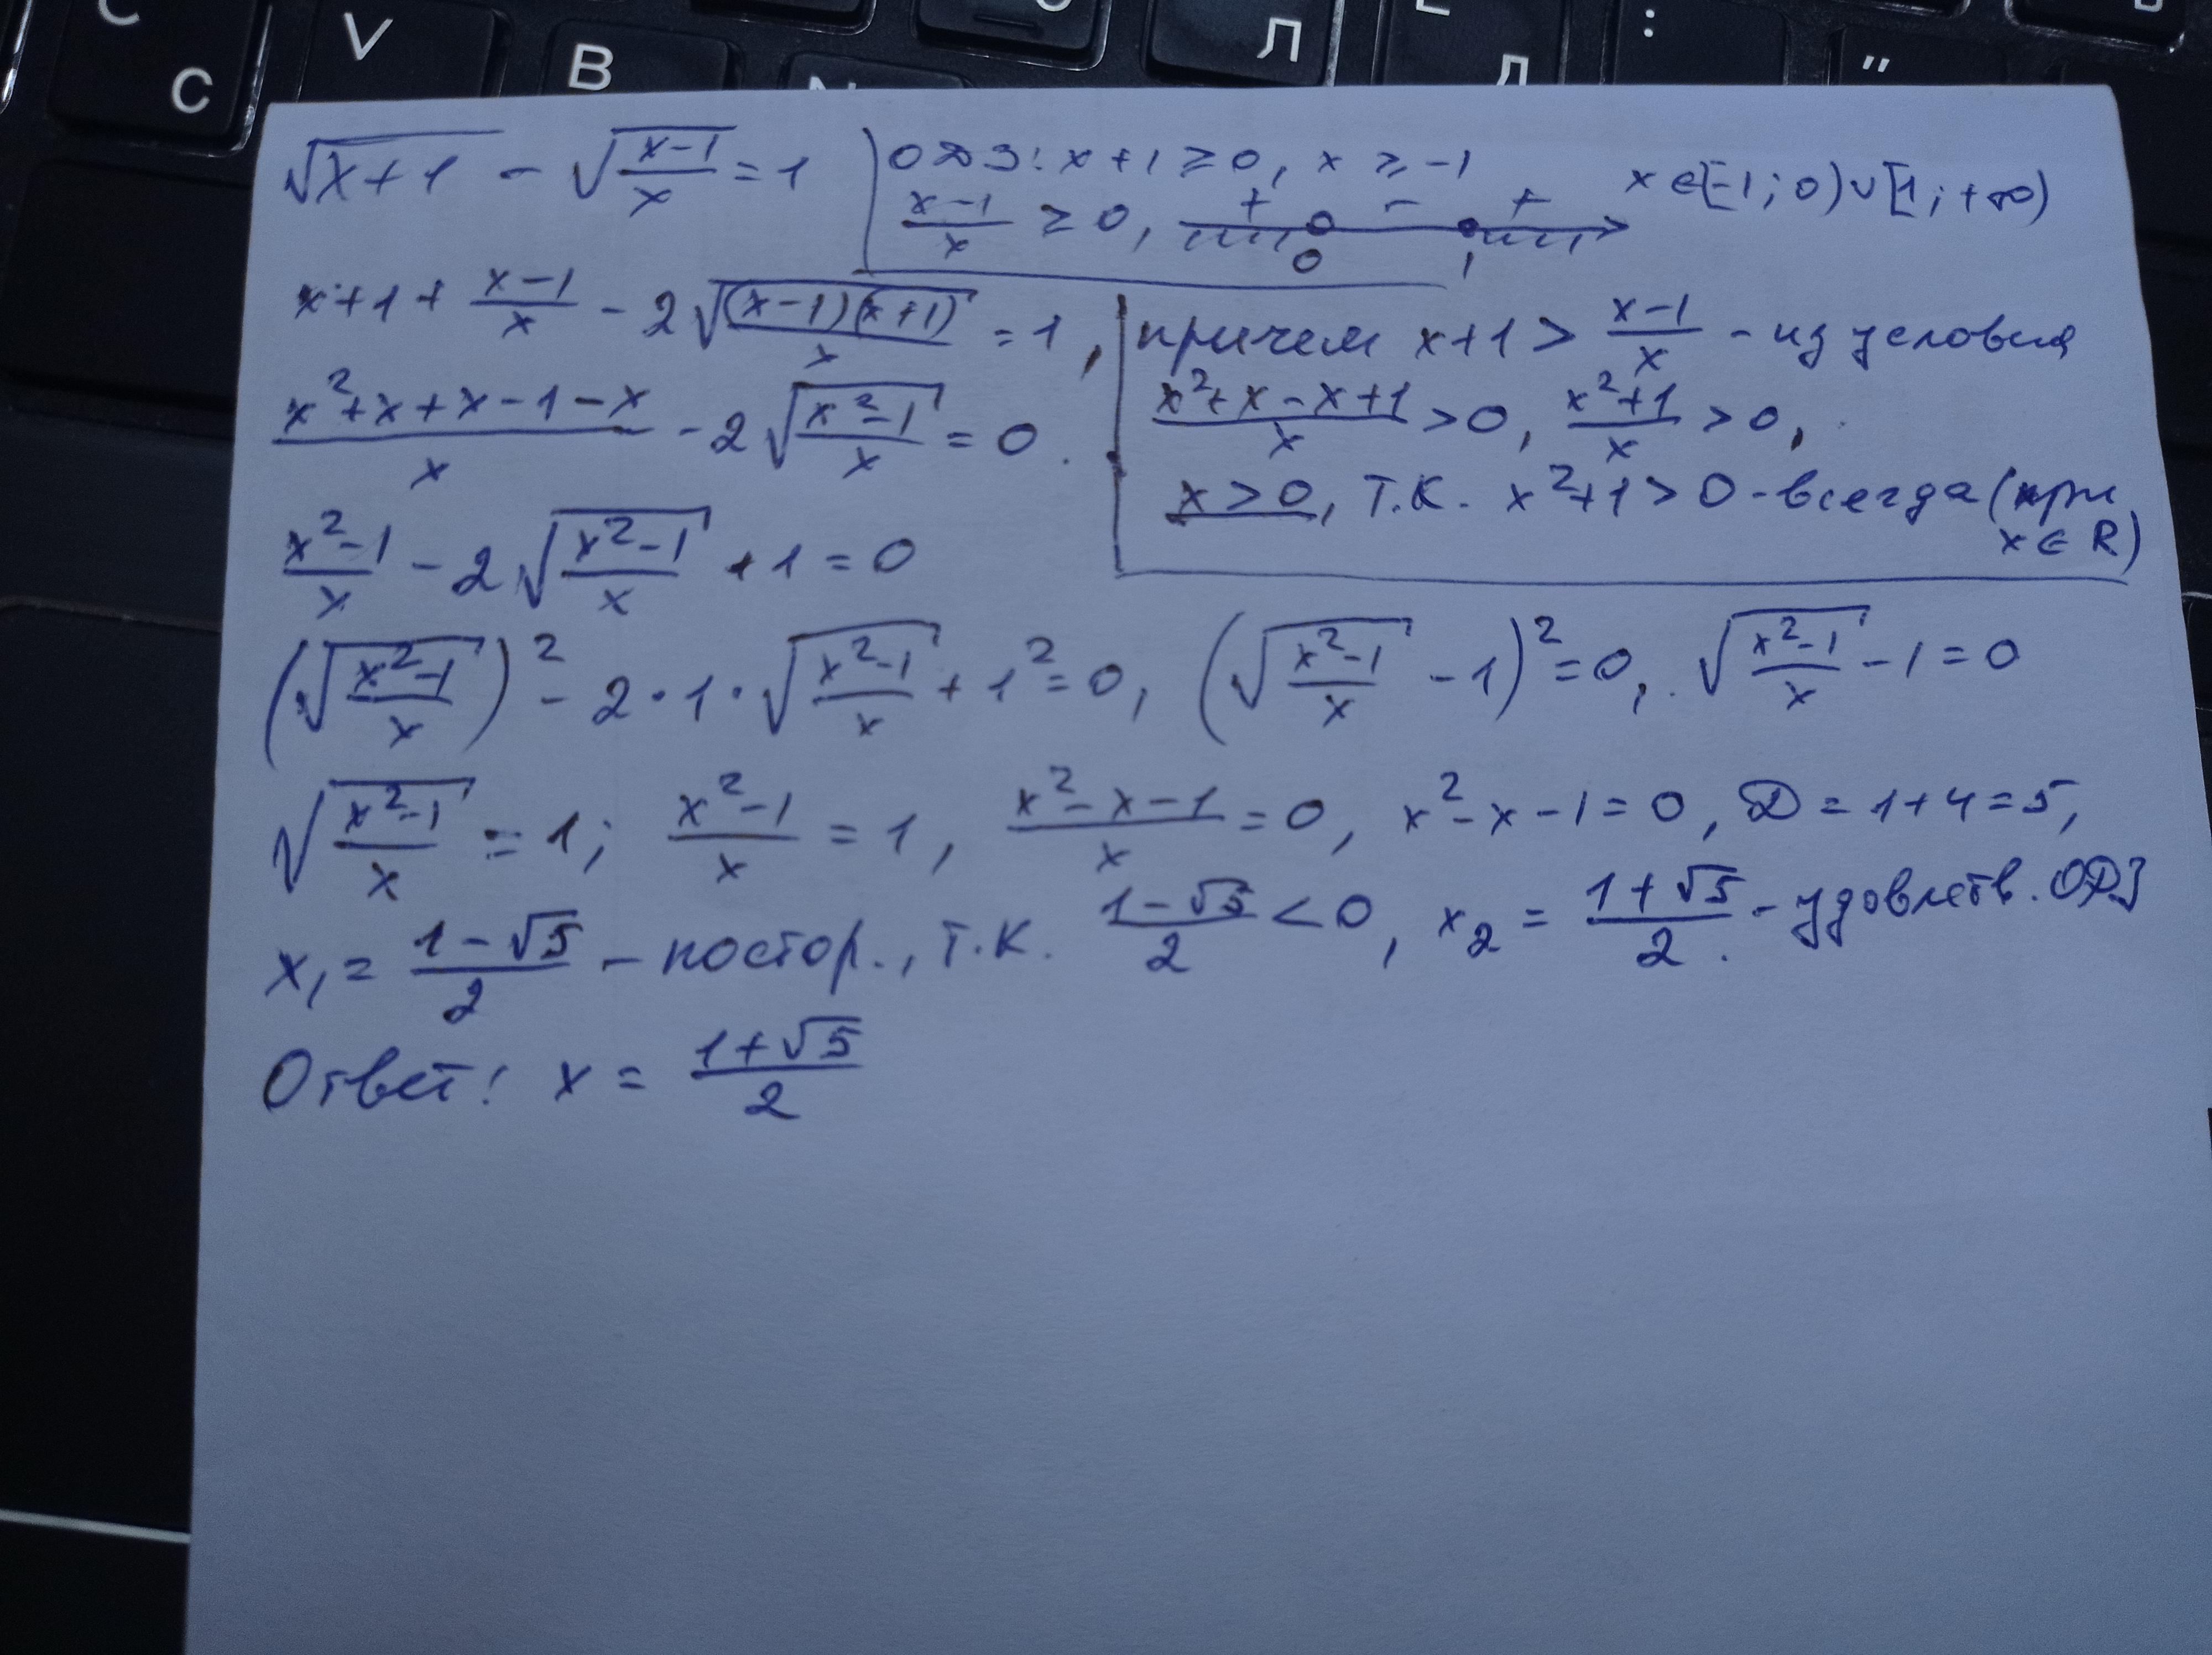 C
C
V
B
Л
Д
:
"
√(x+1) - √((x-1)/x) = 1
ОДЗ: x+1 ≥ 0, x ≥ -1
(x-1)/x ≥ 0, + - +
0 1
x ∈ [-1; 0) ∪ [1; +∞)
x+1+(x-1)/x - 2√((x-1)(x+1)/x) = 1,
причем x+1 > (x-1)/x - из условия
(x²+x+x-1-x)/x - 2√((x²-1)/x) = 0.
(x²+x-x+1)/x > 0, (x²+1)/x > 0,
x > 0, т.к. x²+1 > 0 - всегда (при
x ∈ R)
(x²-1)/x - 2√((x²-1)/x) + 1 = 0
(√((x²-1)/x))² - 2·1·√((x²-1)/x) + 1² = 0, (√((x²-1)/x) - 1)² = 0, √((x²-1)/x) - 1 = 0
√((x²-1)/x) = 1; (x²-1)/x = 1, (x²-x-1)/x = 0, x²-x-1 = 0, D = 1+4 = 5,
x₁ = (1-√5)/2 - постор., т.к. (1-√5)/2 < 0, x₂ = (1+√5)/2 - удовлетв. ОДЗ
Ответ: x = (1+√5)/2